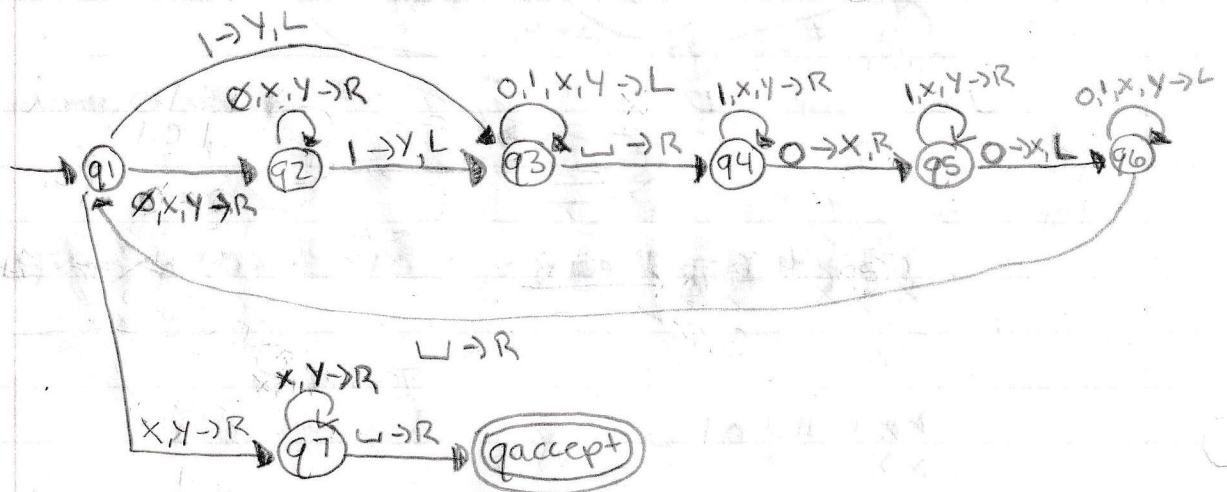 1→Y,L
Ø,X,Y→R
0,1,X,Y→L
1,X,Y→R
1,X,Y→R
0,1,X,Y→L
q1
Ø,X,Y→R
q2
1→Y,L
q3
⊔→R
q4
0→X,R
q5
0→X,L
q6
⊔→R
X,Y→R
X,Y→R
q7
⊔→R
qaccept